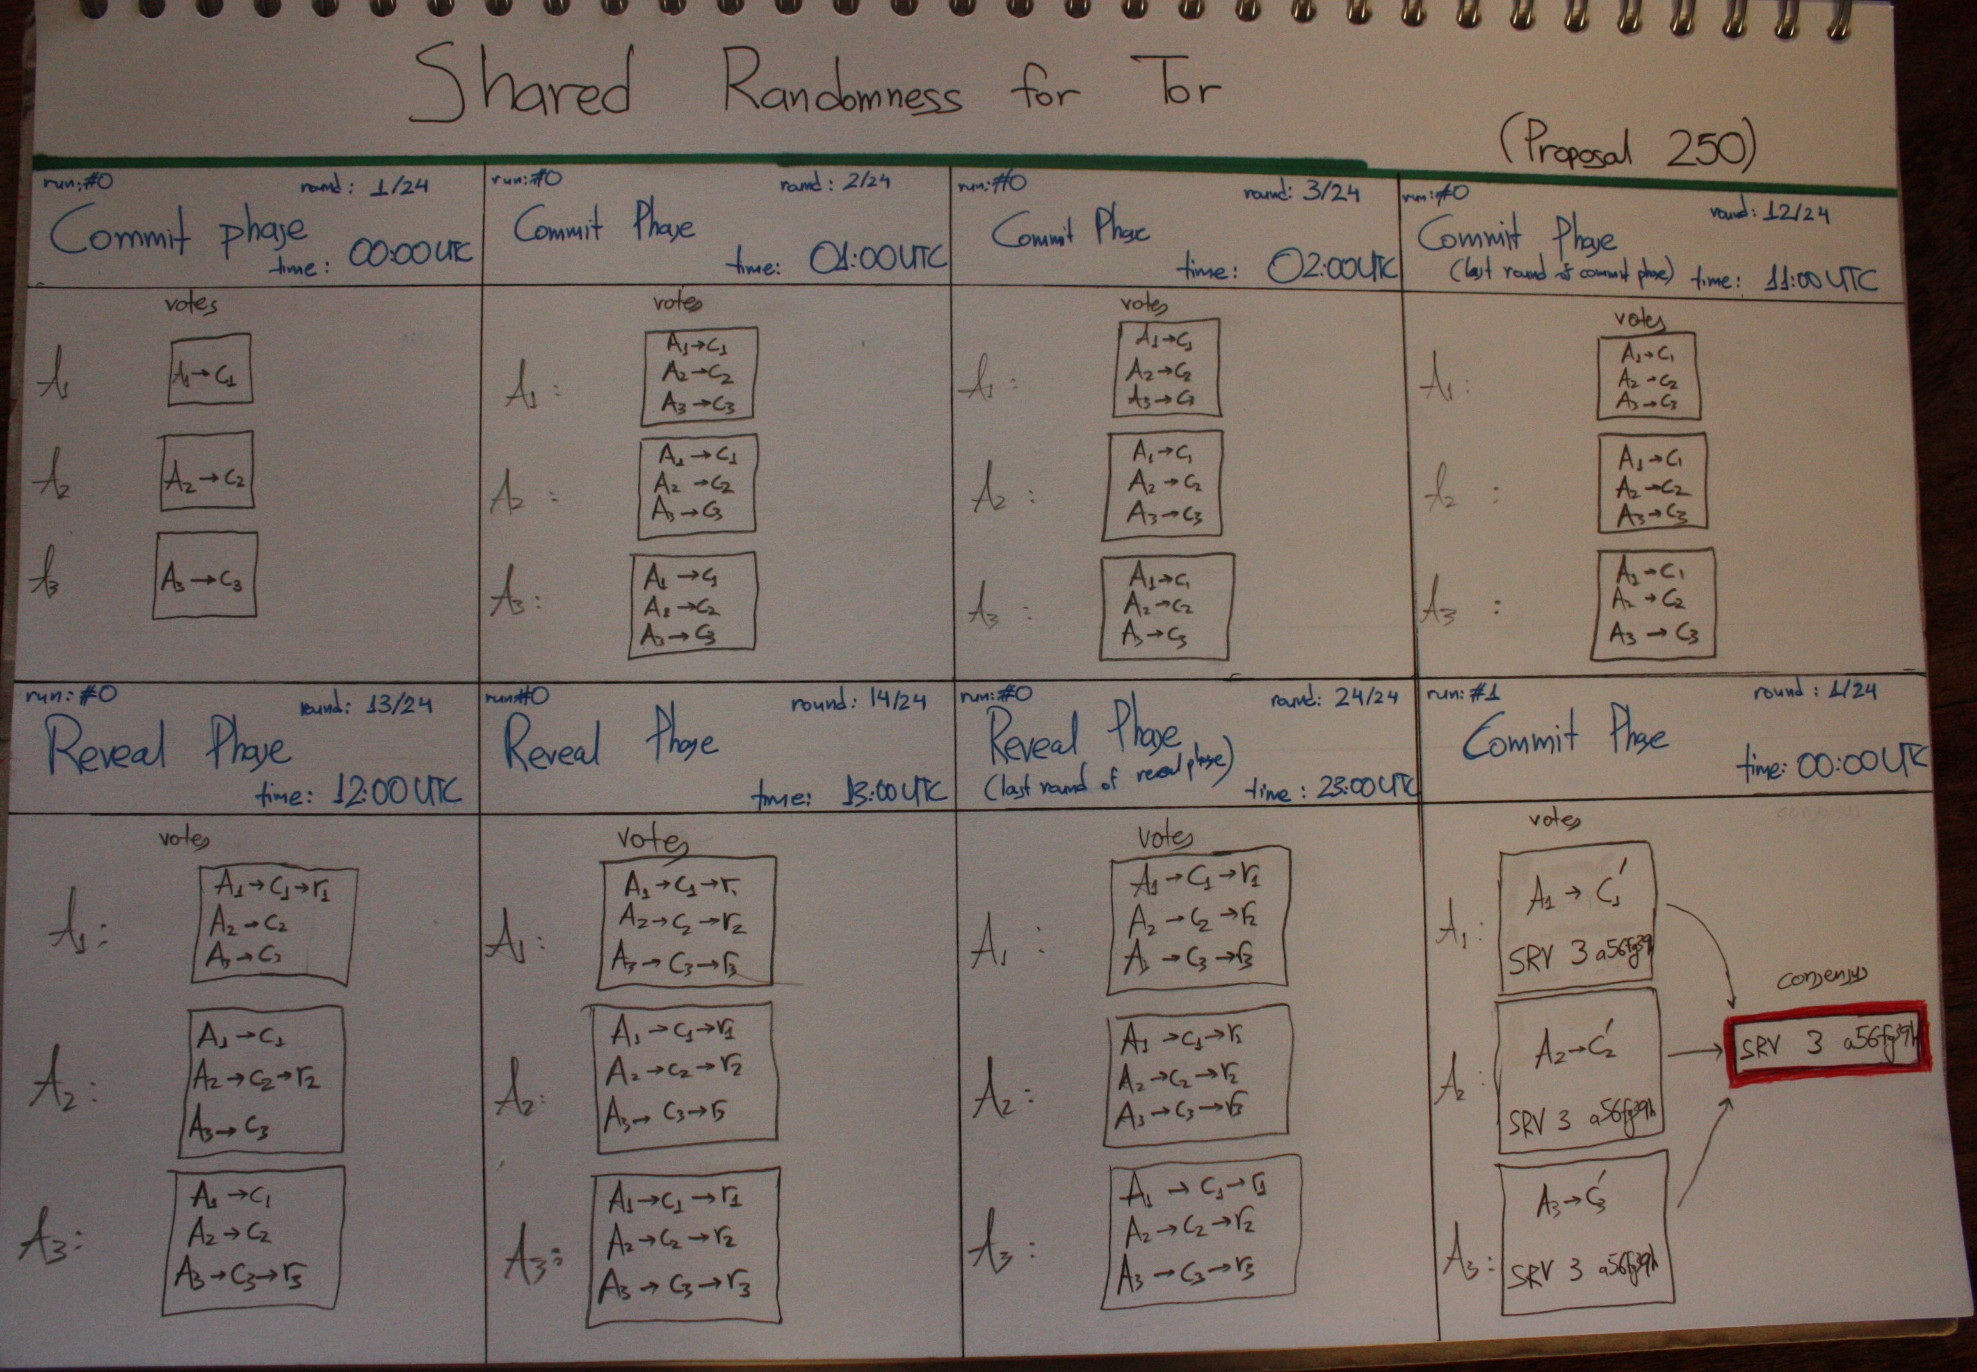 Shared Randomness for Tor
(Proposal 250)
run:#0 round: 1/24
Commit phase
time: 00:00UTC
votes
A1 A1→C1
A2 A2→C2
A3 A3→C3
run:#0 round: 2/24
Commit Phase
time: 01:00UTC
votes
A1:
A1→C1
A2→C2
A3→C3
A2:
A1→C1
A2→C2
A3→C3
A3:
A1→C1
A2→C2
A3→C3
run:#0 round: 3/24
Commit Phase
time: 02:00UTC
votes
A1:
A1→C1
A2→C2
A3→C3
A2:
A1→C1
A2→C2
A3→C3
A3:
A1→C1
A2→C2
A3→C3
run:#0 round: 12/24
Commit Phase
(last round of commit phase) time: 11:00UTC
votes
A1:
A1→C1
A2→C2
A3→C3
A2:
A1→C1
A2→C2
A3→C3
A3:
A1→C1
A2→C2
A3→C3
run:#0 round: 13/24
Reveal Phase
time: 12:00UTC
votes
A1:
A1→C1→r1
A2→C2
A3→C3
A2:
A1→C1
A2→C2→r2
A3→C3
A3:
A1→C1
A2→C2
A3→C3→r3
run:#0 round: 14/24
Reveal Phase
time: 13:00UTC
votes
A1:
A1→C1→r1
A2→C2→r2
A3→C3→r3
A2:
A1→C1→r1
A2→C2→r2
A3→C3→r3
A3:
A1→C1→r1
A2→C2→r2
A3→C3→r3
run:#0 round: 24/24
Reveal Phase
(last round of reveal phase)
time: 23:00UTC
votes
A1:
A1→C1→r1
A2→C2→r2
A3→C3→r3
A2:
A1→C1→r1
A2→C2→r2
A3→C3→r3
A3:
A1→C1→r1
A2→C2→r2
A3→C3→r3
run:#1 round: 1/24
Commit Phase
time: 00:00UTC
votes
A1:
A1→C1'
SRV 3 a56fg39h
A2:
A2→C2'
SRV 3 a56fg39h
A3:
A3→C3'
SRV 3 a56fg39h
consensus
SRV 3 a56fg39h